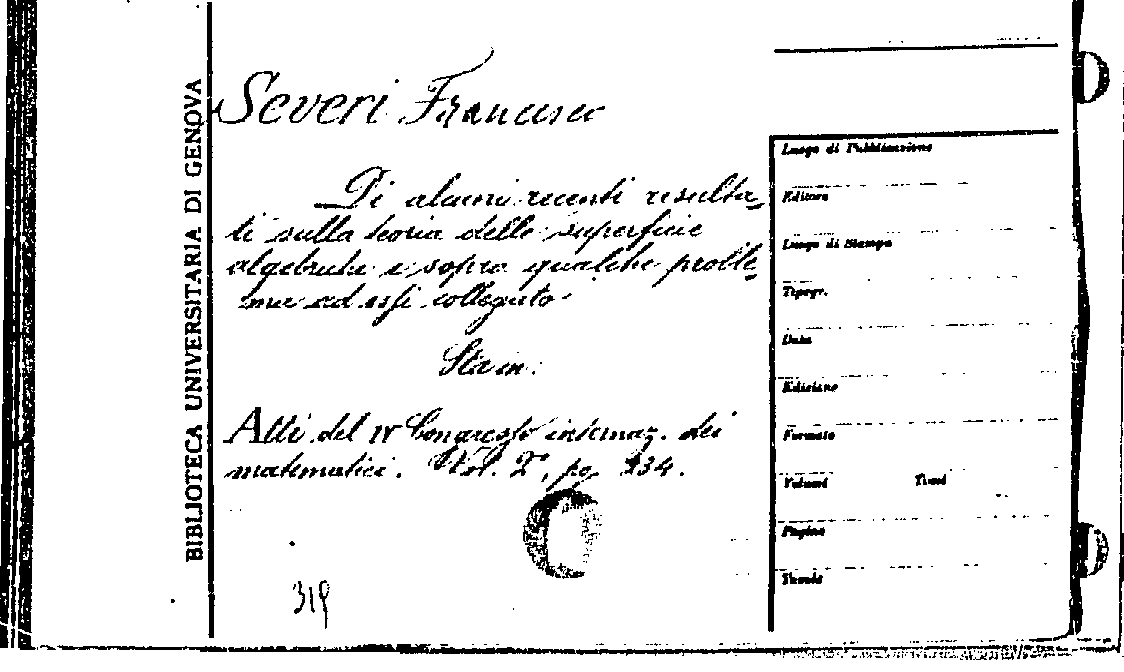 BIBLIOTECA UNIVERSITARIA DI GENOVA
Severi Francesco
Di alcuni recenti risulta-
ti sulla teoria delle superficie
algebriche e sopra qualche proble-
ma ad essi collegato
Sta in:
Atti del IV Congresso internaz. dei
matematici. Vol. 2°, pg. 234.
319
Luogo di Pubblicazione
Editore
Luogo di Stampa
Tipogr.
Data
Edizione
Formato
Volumi Tomi
Pagine
Tavole